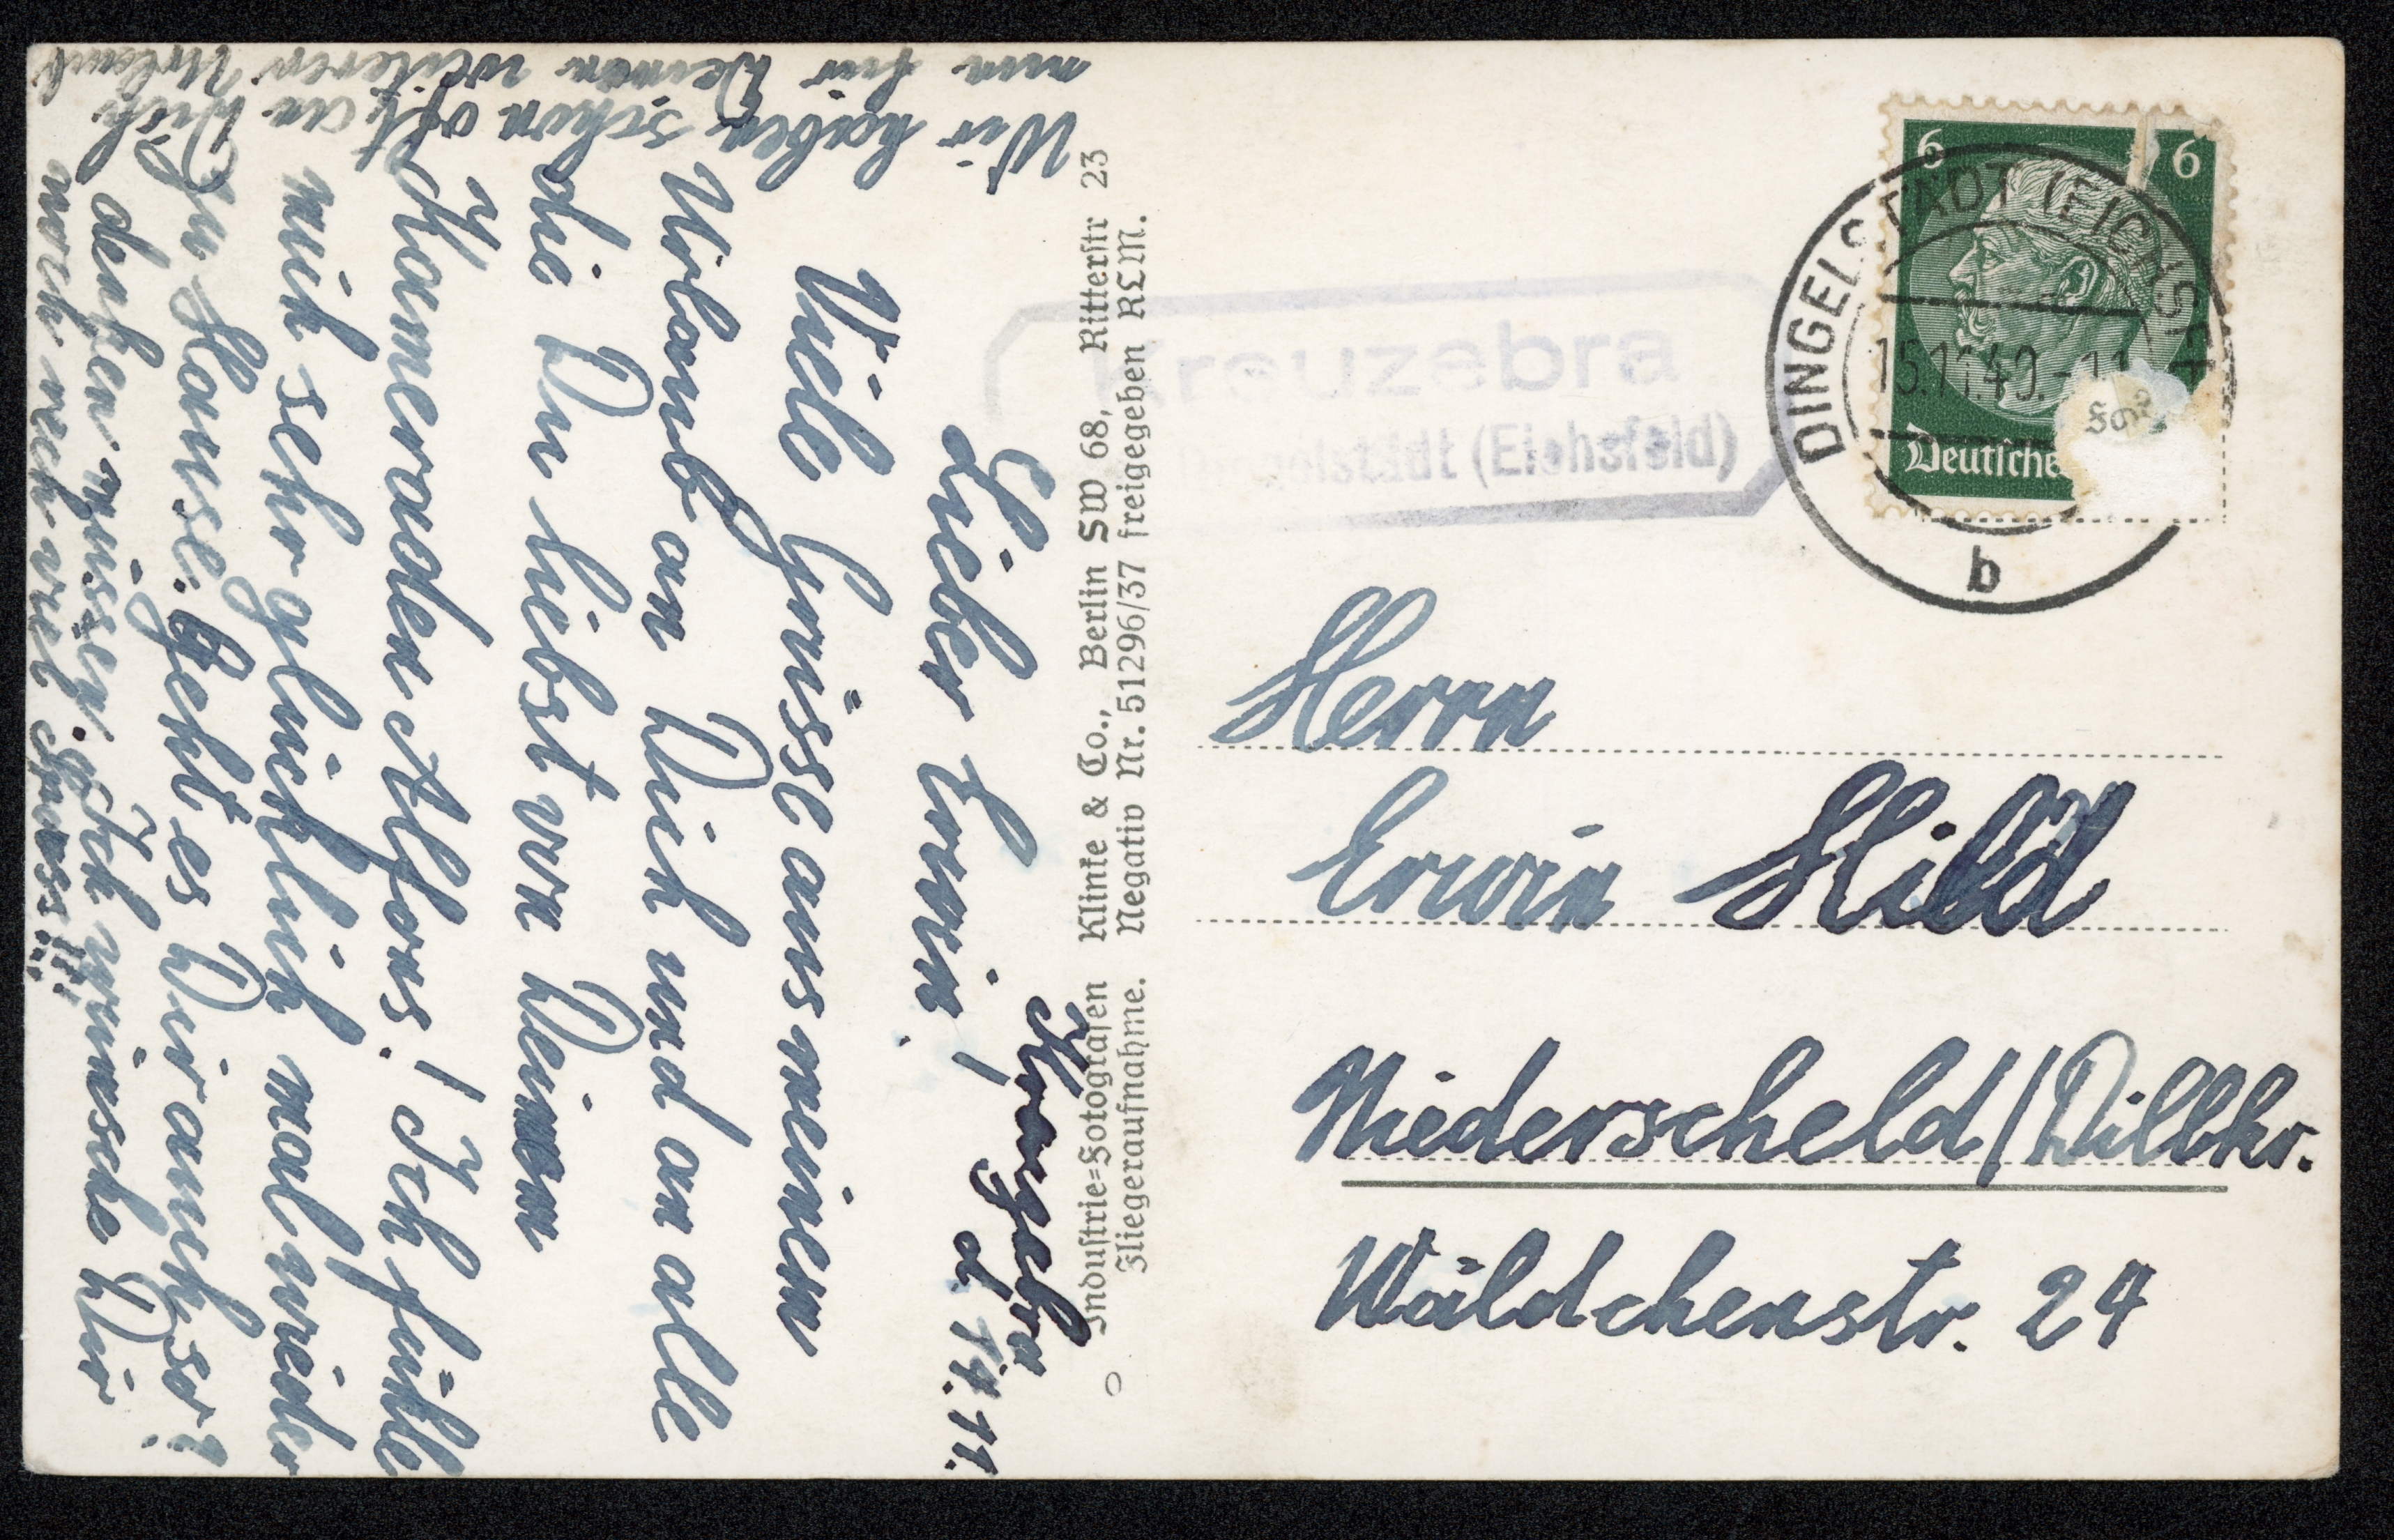 Kreuzebra
d. 14.11.
Lieber Erwin!
Viele Grüsse aus meinem
Urlaub an Dich und an alle
die Du liebst von Deinem
Kameraden Alfons! Ich fühle
mich sehr glücklich mal wieder
zu Hause. Geht es Dir auch so?
Wir haben schon oft an Dich
denken müssen. Ich wünsche Dir
nun für Deinen weiteren Urlaub
noch recht viel Spass!!!
Industrie-Fotografen Klinke & Co., Berlin SW 68, Ritterstr 23
Fliegeraufnahme. Negativ Nr. 51296/37 freigegeben RLM.
6 6
Deutsche
DINGELSTÄDT (EICHSFELD)
15.11.40.-11
b
Kreuzebra
Dingelstädt (Eichsfeld)
Herrn
Erwin Hild
Niederscheld/Dillkr.
Wäldchenstr. 24